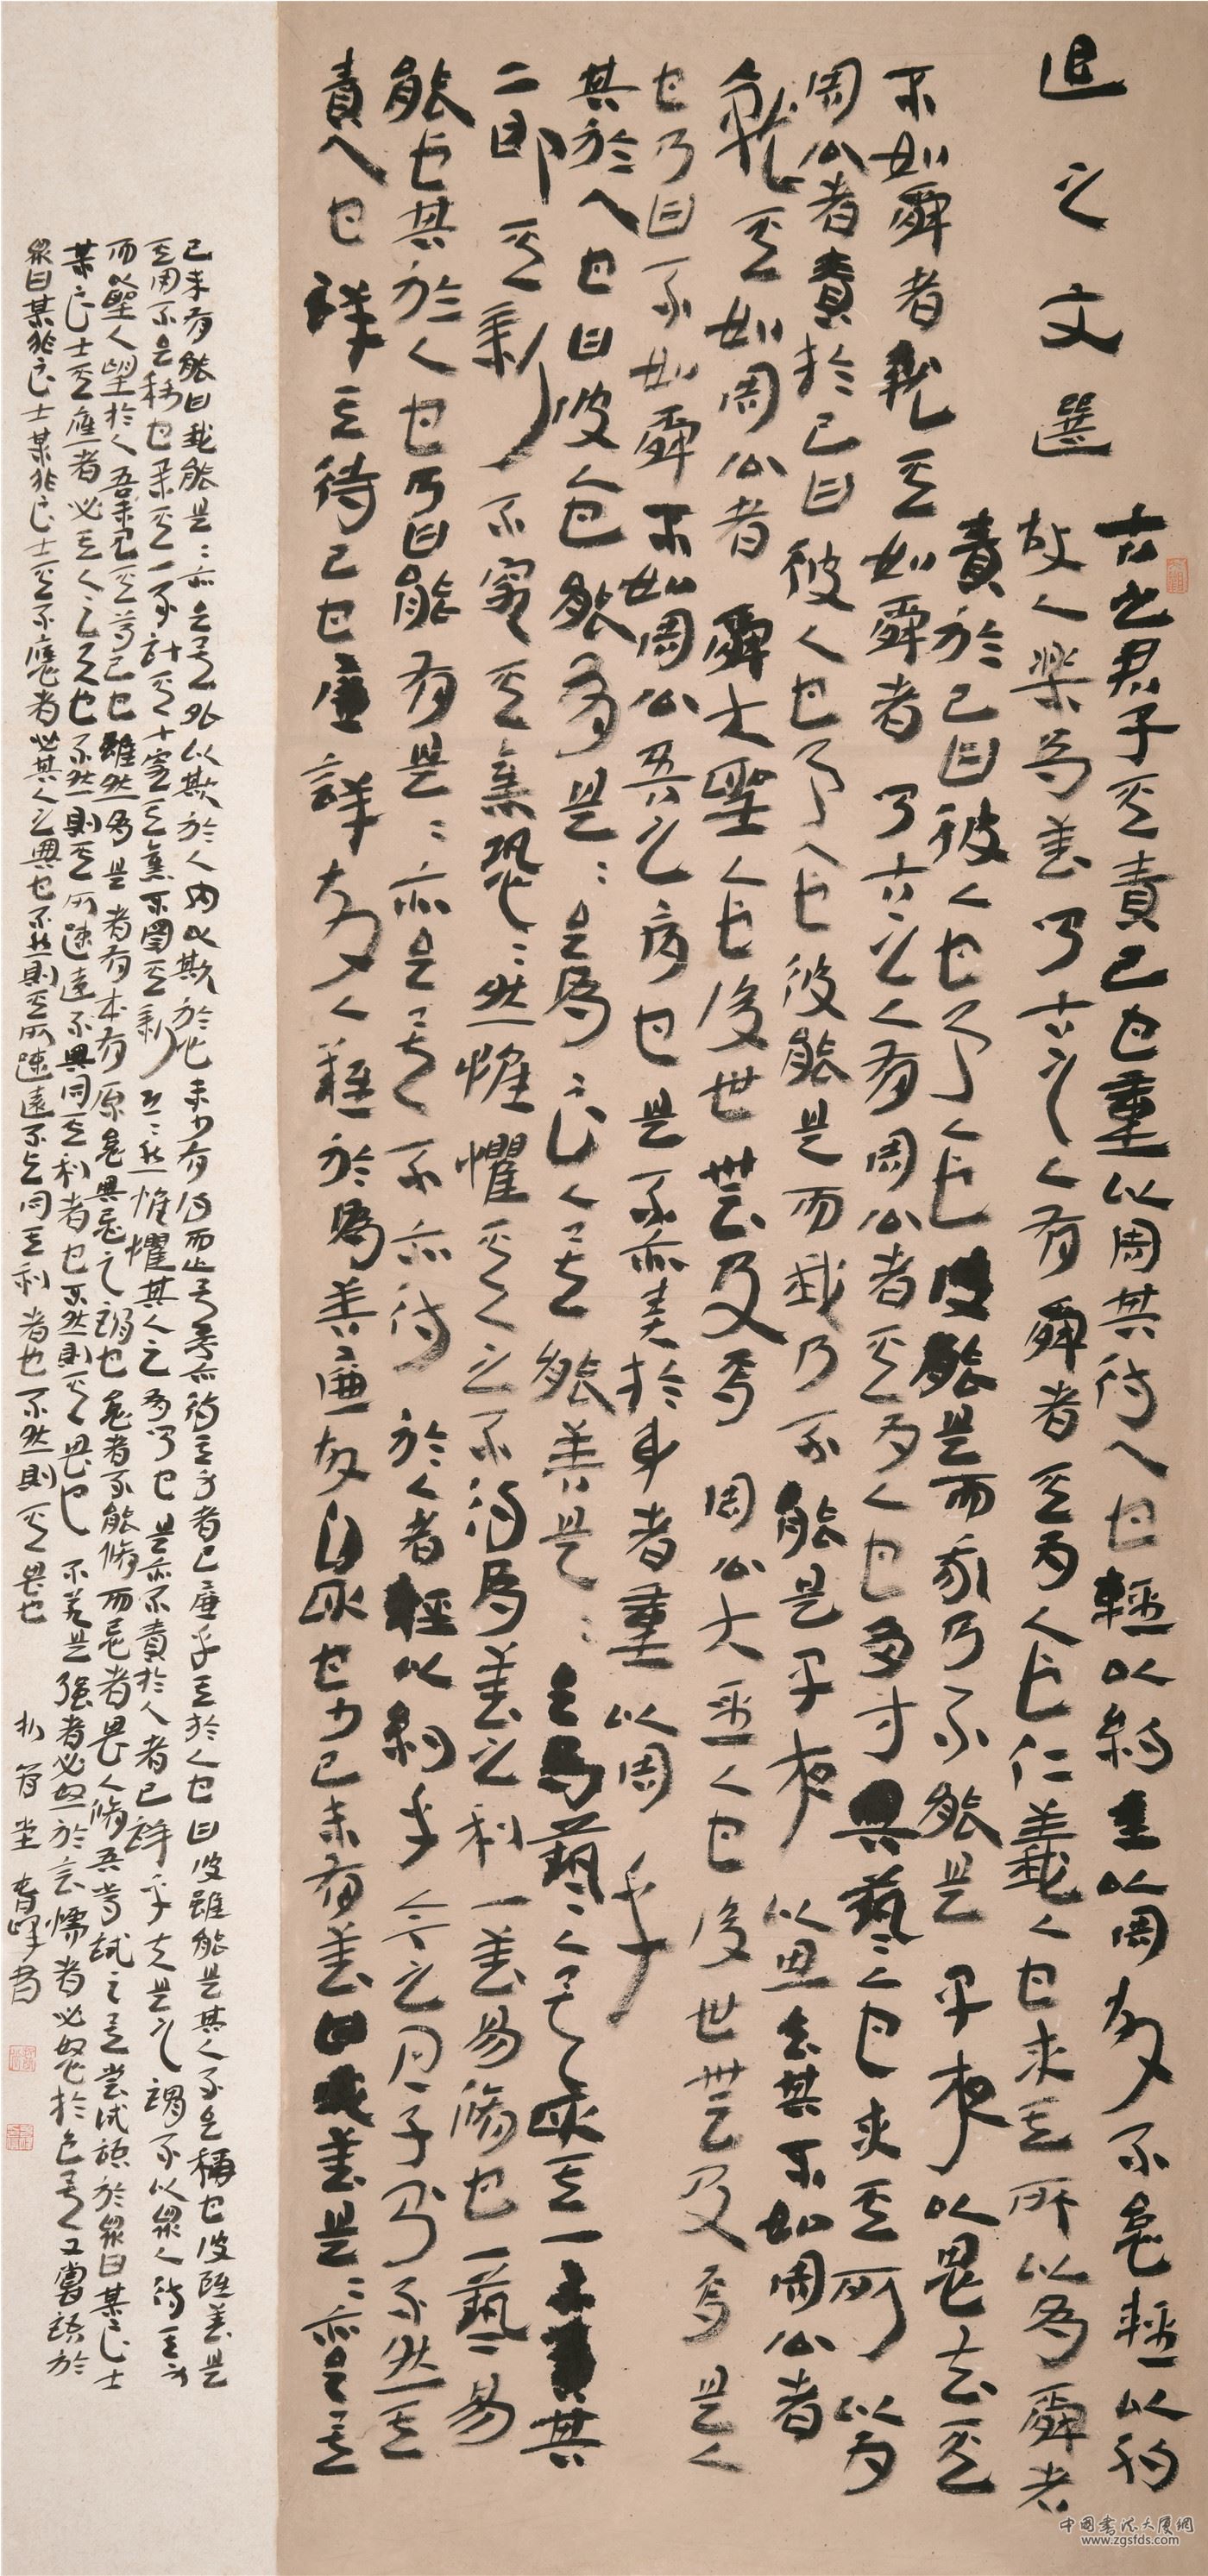 退之文選
古之君子其責己也重以周其待人也輕以約重以周故不怠輕以約
故人樂為善聞古之人有舜者其為人也仁義人也求其所以為舜者
責於己曰彼人也予人也彼能是而我乃不能是早夜以思去其
不如舜者就其如舜者聞古之人有周公者其為人也多才與藝人也求其所以為
周公者責於己曰彼人也予人也彼能是而我乃不能是早夜以思去其不如周公者
就其如周公者舜大聖人也後世無及焉周公大聖人也後世無及焉是人
也乃曰不如舜不如周公吾之病也是不亦責於身者重以周乎
其於人也曰彼人也能有是是足為良人矣能善是是足為藝人矣取其一不責其
二即其新不究其舊恐恐然惟懼其人之不得為善之利一善易脩也一藝易
能也其於人也乃曰能有是是亦足矣不亦待於人者輕以約乎今之君子則不然其
責人也詳其待己也廉詳故人難於為善廉故自取也少己未有善曰我善是是亦足矣
己未有能曰我能是是亦足矣外以欺於人內以欺於心未少有得而止矣不亦待其身者已廉乎其於人也曰彼雖能是其人不足稱也彼雖善是
其用不足稱也舉其一不計其十究其舊不圖其新恐恐然惟懼其人之有聞也是亦不責於人者已詳乎夫是之謂不以眾人待其身
而以聖人望於人吾未見其尊己也雖然為是者有本有原怠與忌之謂也怠者不能脩而忌者畏人脩吾嘗試之矣嘗試語於眾曰某良士
某良士其應者必其人之與也不然則其所疎遠不與同其利者也不然則其畏也不若是強者必怒於言懦者必怒於色矣又嘗語於
眾曰某非良士某非良士其不應者必其人之與也不然則其所疎遠不與同其利者也不然則其畏也
書
中國書法大廈網
www.zgsfds.com